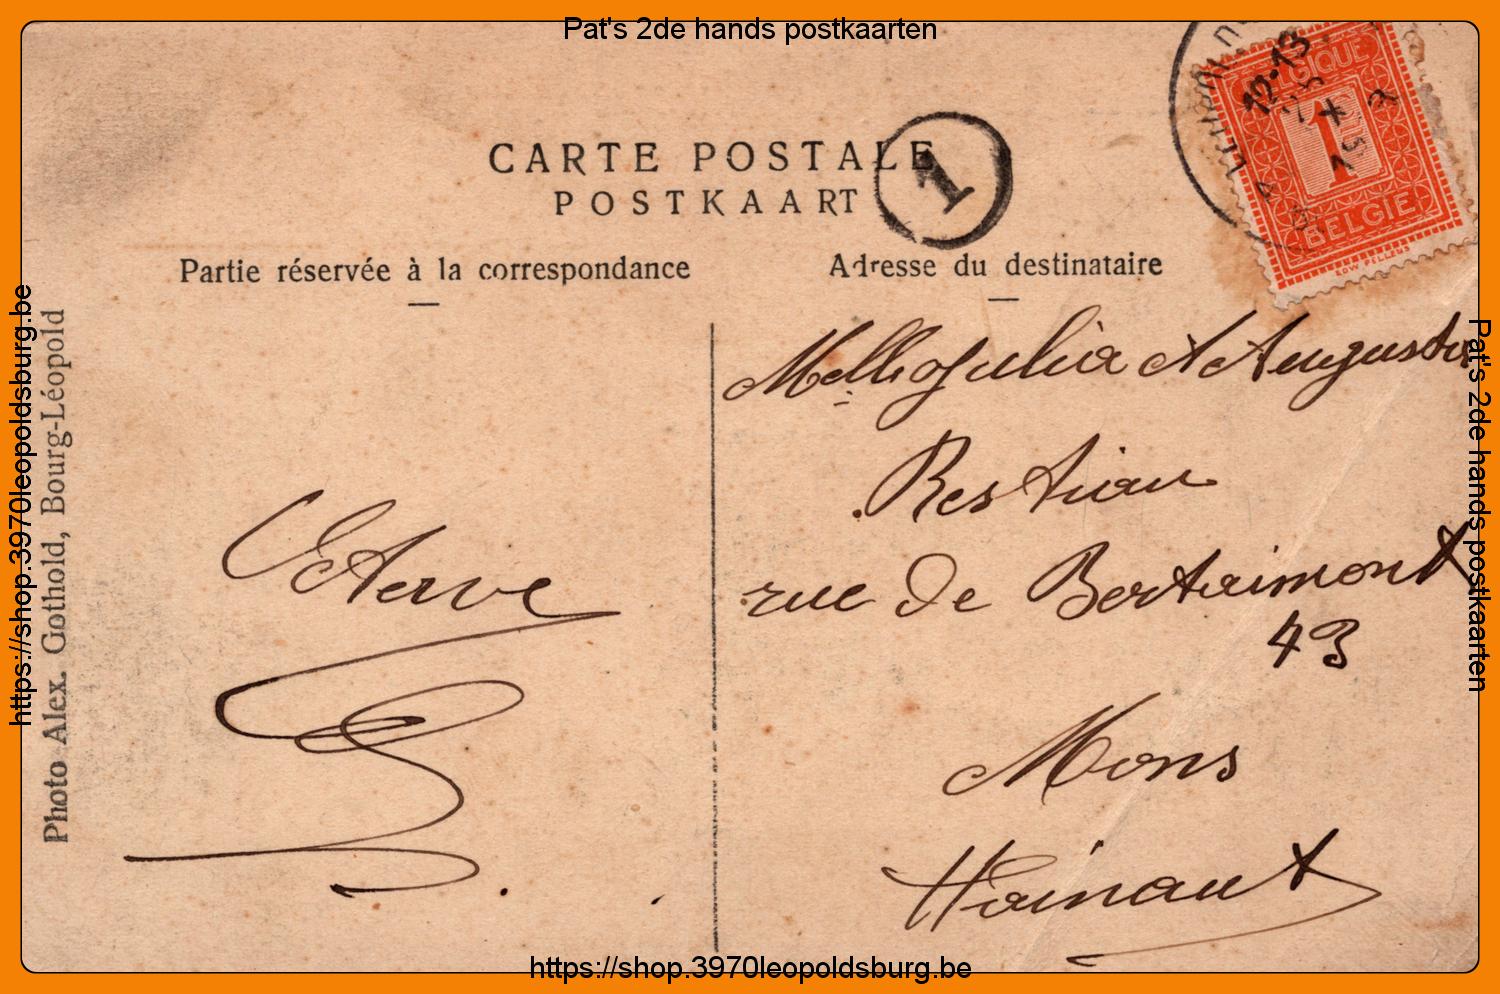 Pat's 2de hands postkaarten
CARTE POSTALE
POSTKAART
1
Partie réservée à la correspondance
Adresse du destinataire
BELGIQUE
1
BELGIË
12-13
Melle Julia et Augusta
Restiau
rue de Bertaimont
43
Mons
Hainaut
Octave
Photo Alex. Gothold, Bourg-Léopold
https://shop.3970leopoldsburg.be
Pat's 2de hands postkaarten
https://shop.3970leopoldsburg.be